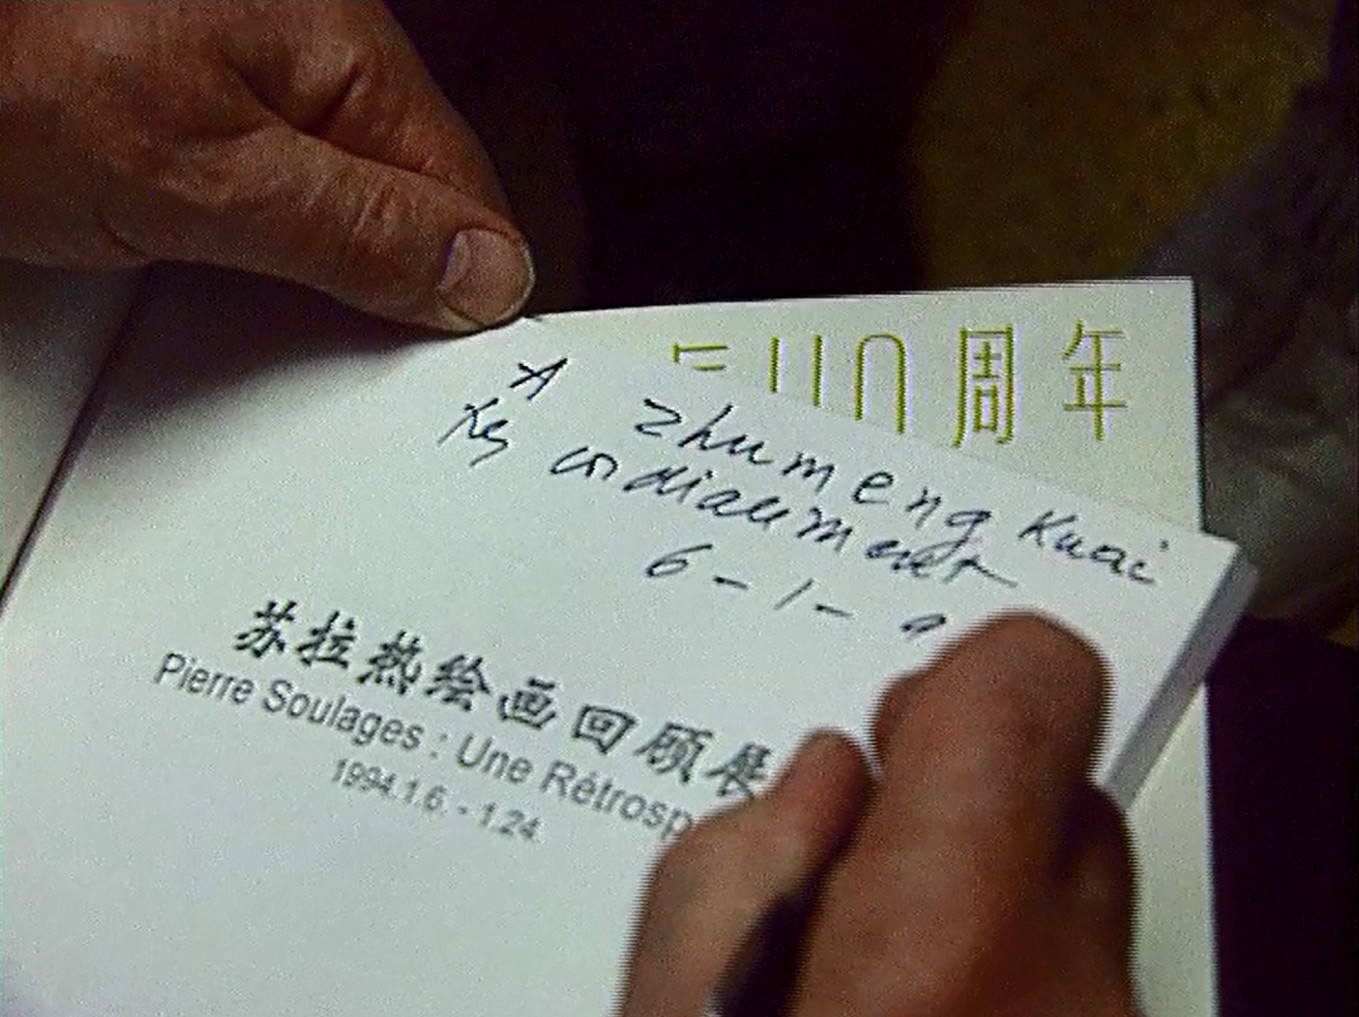 周年
A Zhumeng Kuai
Très cordialement
6-1-9
苏拉热绘画回顾展
Pierre Soulages : Une Rétrosp
1994.1.6. - 1.24.